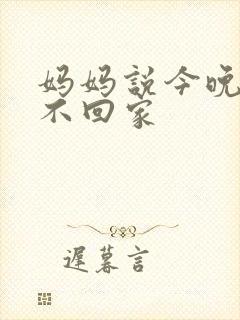 妈妈説今晚
不回家
遲暮言